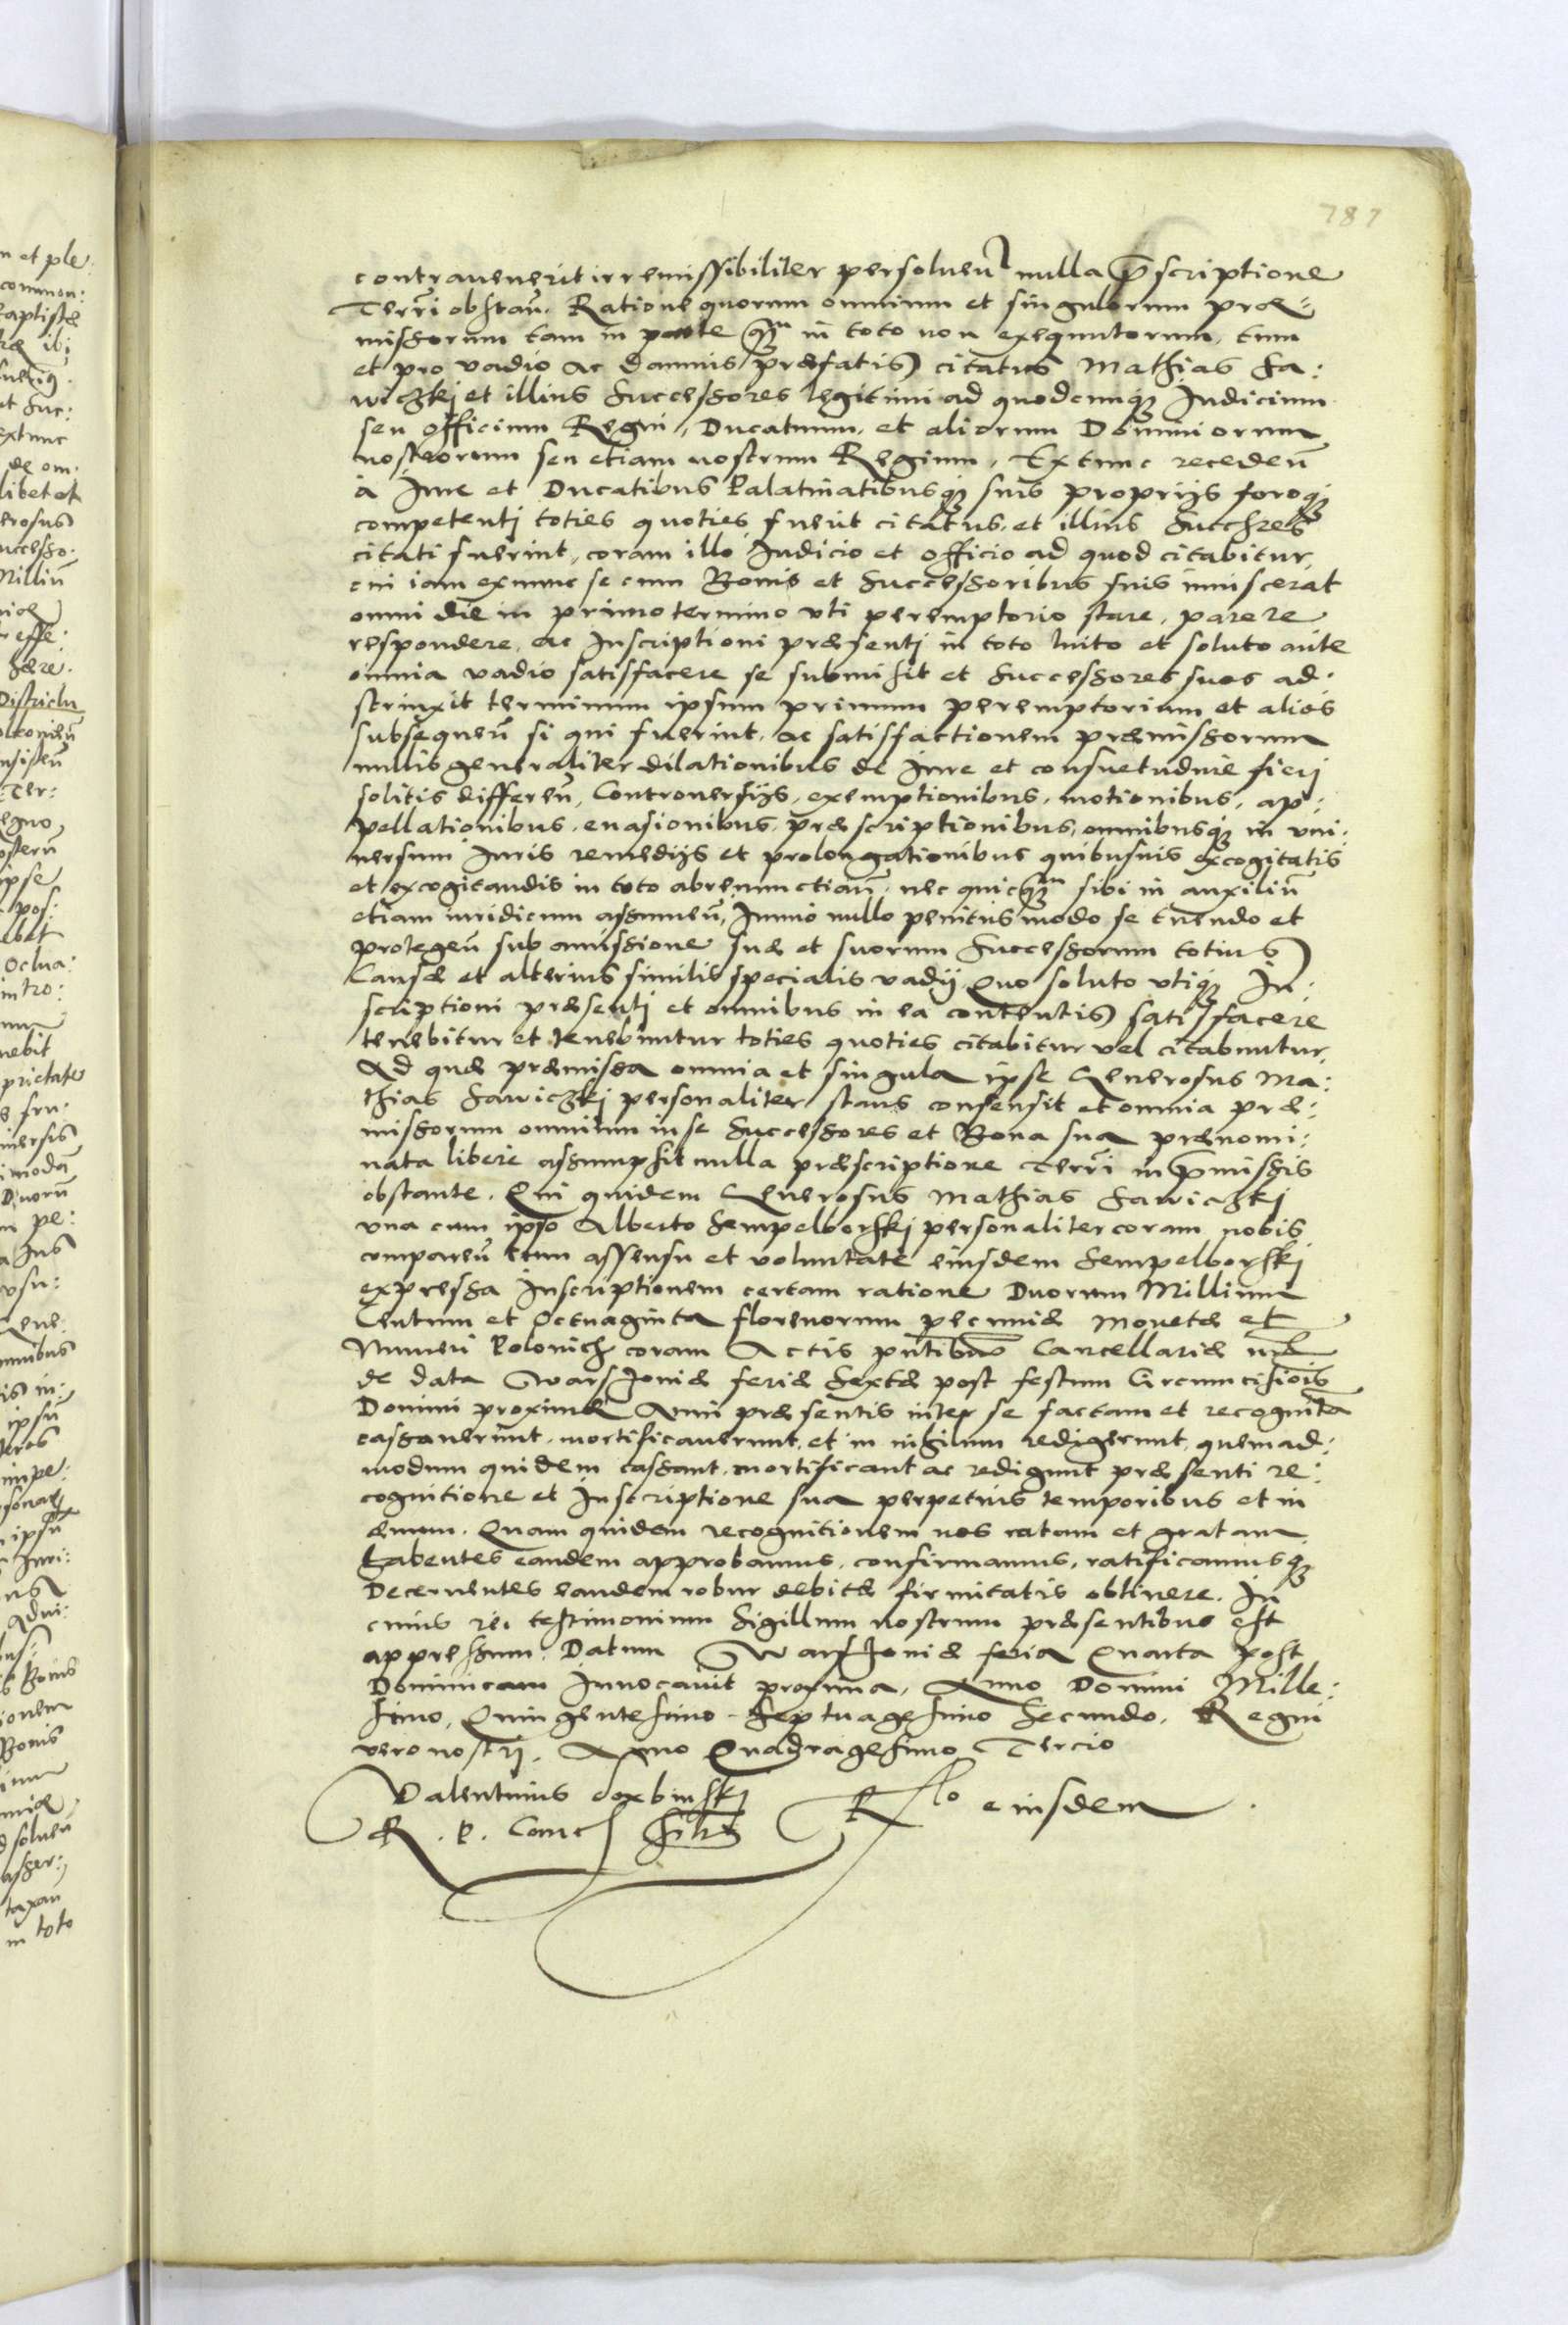 787
contrauenerit irremissibiliter persolueñ nulla p̄scriptione
Terrī obstañ. Ratione quorum omnium et singulorum præ:
missorum tam in parte q̄m in toto non exequutorum, tum
et pro vadio ac damnis præfatis citatus Mathias Sa:
wiczkj et illius Successores legitimi ad quodcunq; Iudicium
seu officium Regni, Ducatuum, et aliorum Dominiorum
nostrorum seu etiam nostrum Regium, Extunc recedeñ
à Iure et Ducatibus Palatinatibusq; suis proprijs foroq;
competentj toties quoties fuerit citatus, et illius Succhres
citati fuerint, coram illo Iudicio et officio ad quod citabitur,
cui iam exnunc se cum Bonis et Successoribus suis inuiscerat
omni die in primo termino vti peremptorio stare, parere
respondere, ac Inscriptioni præsentj in toto luito et soluto ante
omnia vadio satisfacere se submisit et Successores suos ad:
strinxit terminum ipsum primum peremptorium et alios
subsequeñ si qui fuerint, ac satisfactionem præmissorum
nullis generaliter dilationibus de Iure et consuetudine fierj
solitis differeñ, Controuersijs, exemptionibus, motionibus, ap:
pellationibus, euasionibus, præscriptionibus, omnibusq; in vni:
uersum Iuris remedijs et prolongationibus quibusuis excogitatis
et excogitandis in toto abrenunctiañ, nec quicq̄m sibi in auxiliū
etiam iuridicum assumeñ, Immo nullo penitus modo se tuendo et
protegeñ sub amissione suæ et suorum Successorum totius
Causæ et alterius similis specialis vadij, Quo soluto vtiq; In:
scriptioni præsentj et omnibus in ea contentis satisfacere
tenebitur et tenebuntur toties quoties citabitur vel citabuntur,
Ad quæ præmissa omnia et singula ipse Generosus Ma:
thias Sawiczkj personaliter stans consensit et omnia præ:
missorum omnium in se Successores et Bona sua prænomi:
nata libere assumpsit nulla præscriptione Terrī in p̄missis
obstante. Qui quidem Generosus Mathias Sawiczkj
vna cum ipso Alberto Sempelborskj personaliter coram nobis
compareñ cum assensu et voluntate eiusdem Sempelborskj
expressa Inscriptionem certam ratione Duorum Millium
Centum et Octuaginta florenorum pecuniæ monetæ et
Numeri Polonich coram Actis pn̄tibus Cancellariæ nræ
de data Warschouiæ feriæ Sextæ post festum Circumcisiōis
Domini proximæ Anni præsentis inter se factam et recognitā
cassauerunt, mortificauerunt, et in nihilum redigerunt, quemad:
modum quidem cassant, mortificant ac redigunt præsenti re:
cognitione et Inscriptione sua perpetuis temporibus et in
æuum. Quam quidem recognitionem nos ratam et gratam
habentes eandem approbamus, confirmamus, ratificamusq;
Decernentes eandem robur debitæ firmitatis obtinere. In
cuius rei testimonium Sigillum nostrum præsentibus est
appressum. Datum Warschouiæ feria Quarta post
Dominicam Inuocauit proxima, Anno Domini Mille:
simo, Quingentesimo Septuagesimo Secundo. Regni
vero nostrj. Anno Quadragesimo Tercio
Valentinus Dembinskj
R. P. Canc
Rlo eiusdem